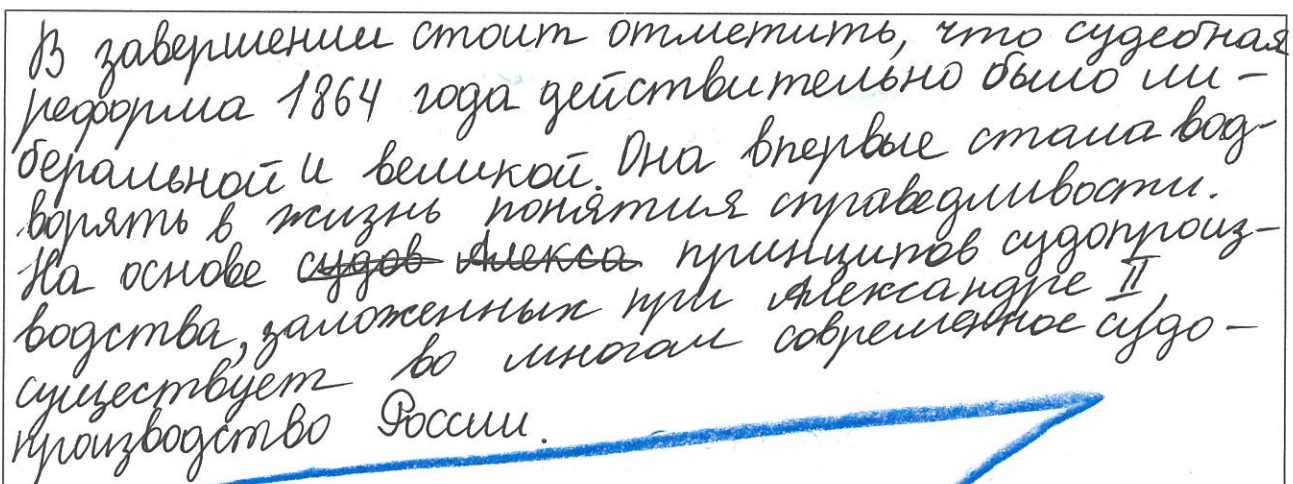 В завершении стоит отметить, что судебная
реформа 1864 года действительно было ли-
беральной и великой. Она впервые стала вод-
ворять в жизнь понятия справедливости.
На основе судов Алекса принципов судопроиз-
водства, заложенных при Александре II,
существует во многом современное судо-
производство России.